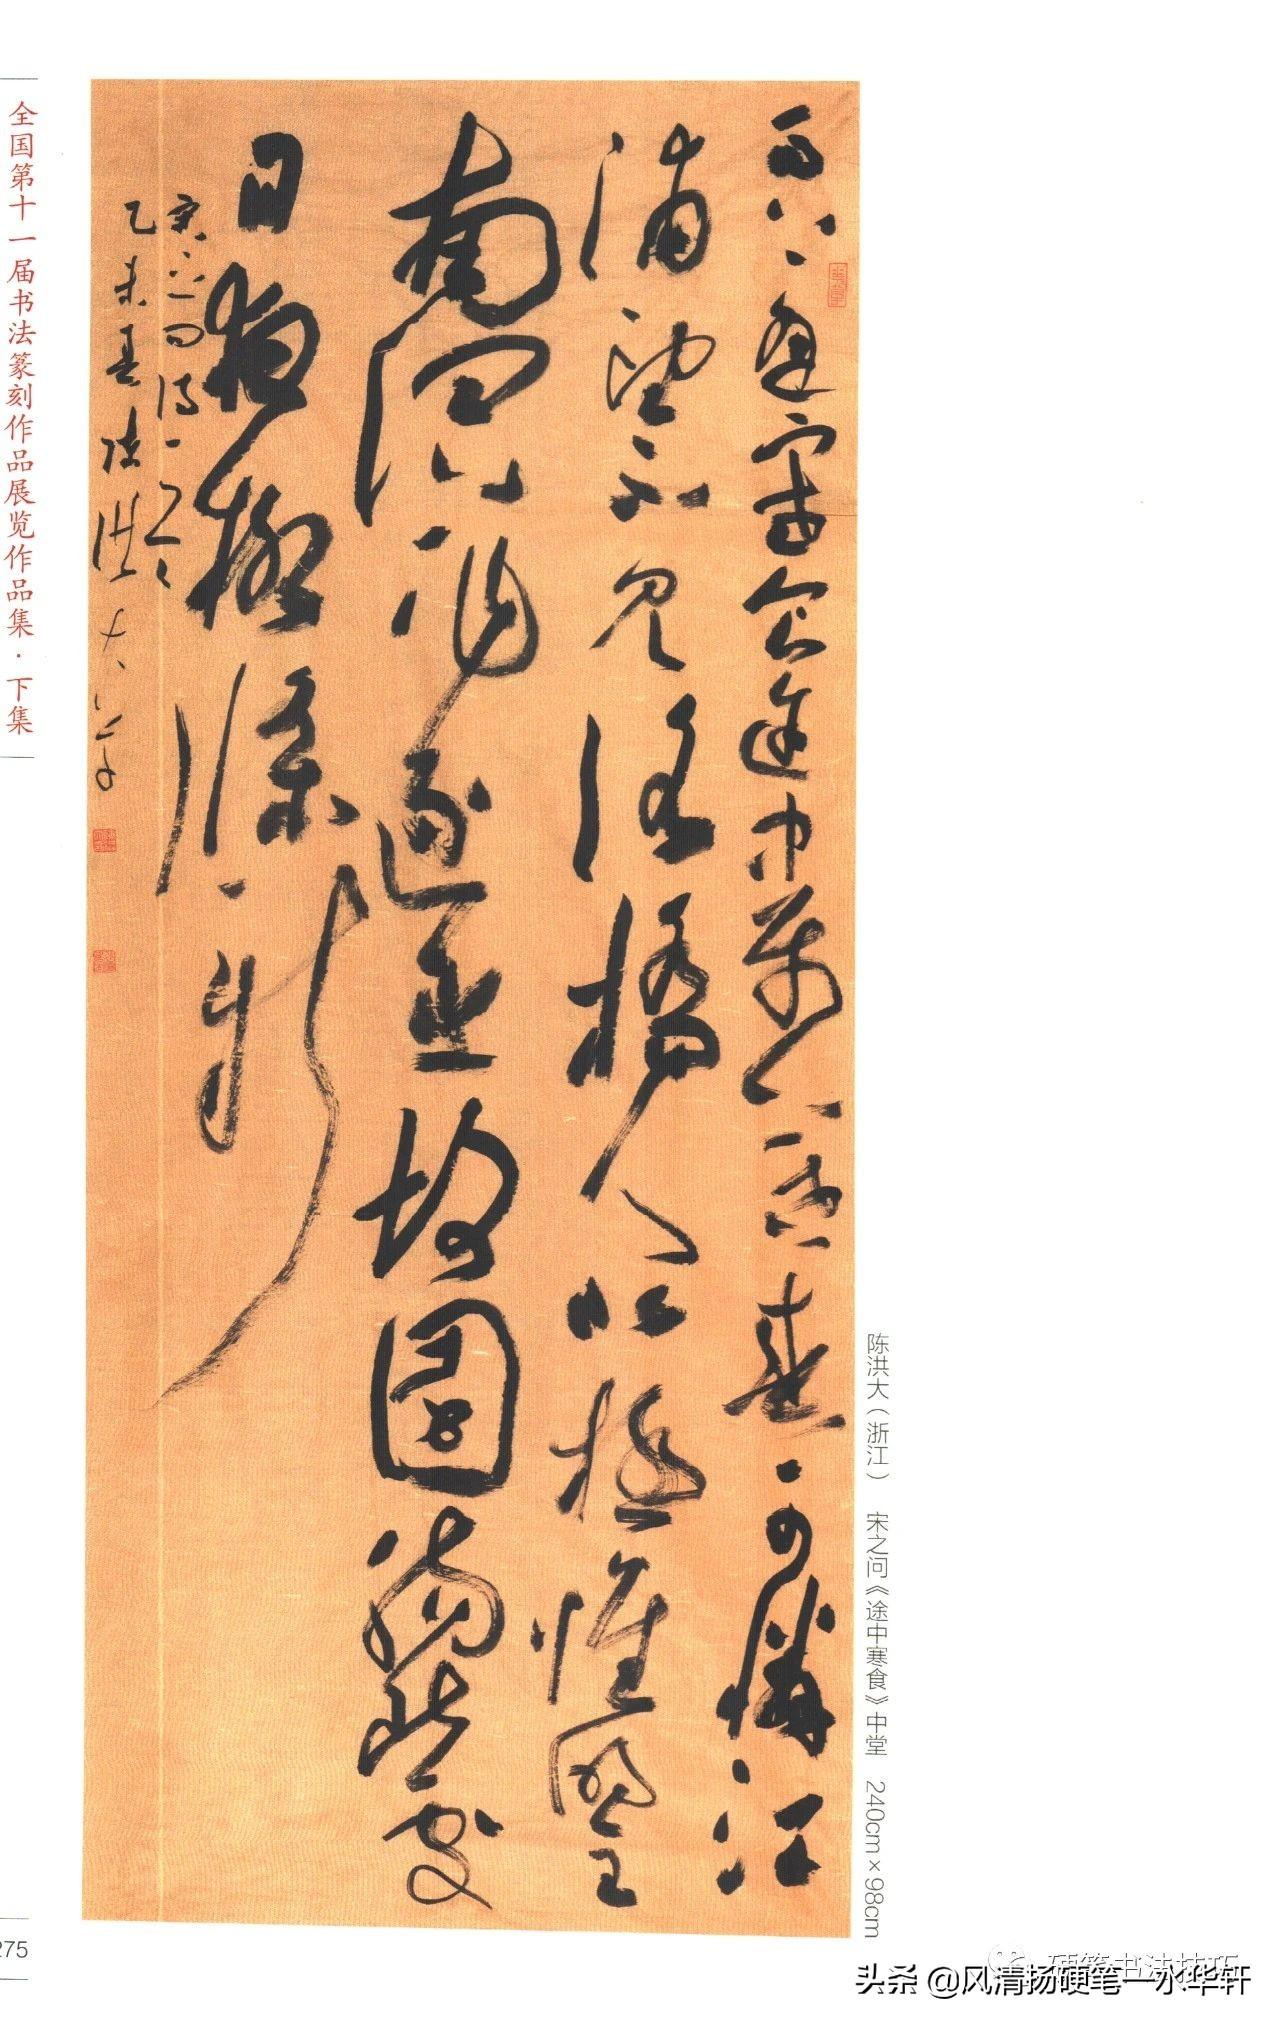 全国第十一届书法篆刻作品展览作品集·下集
馬上逢寒食途中屬暮春可憐江
浦望不見洛橋人北極懷明主
南溟作逐臣故園腸斷處
日夜柳條新
宋之问诗一首
乙未春陈洪大
陈洪大（浙江） 宋之问《途中寒食》中堂 240cm×98cm
275
硬笔书法技巧
头条 @风清扬硬笔一水华轩